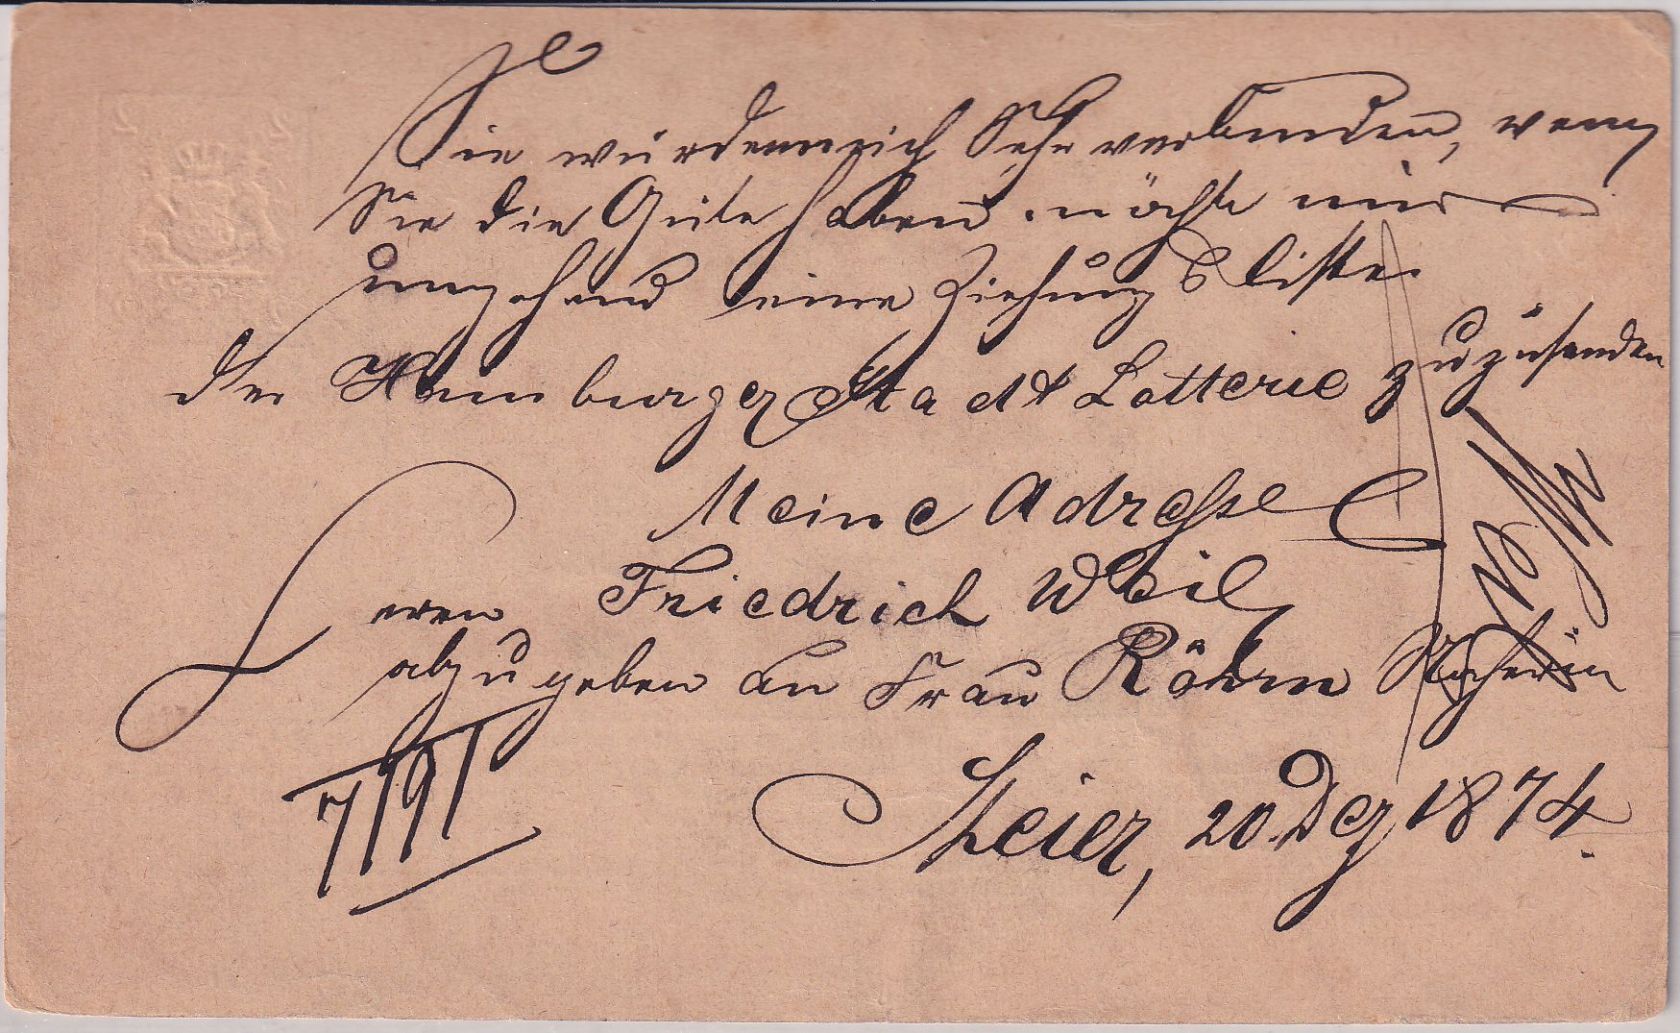 Sie würden mich Sehr verbinden, wenn
Sie die Güte haben möchte mir
umgehend eine Ziehungs liste
der Hamburger Stadt Lotterie zuzusenden
Meine Adresse
Herrn Friedrich Weil
abzugeben an Frau Röhm
Steier, 20. Dez 1874.